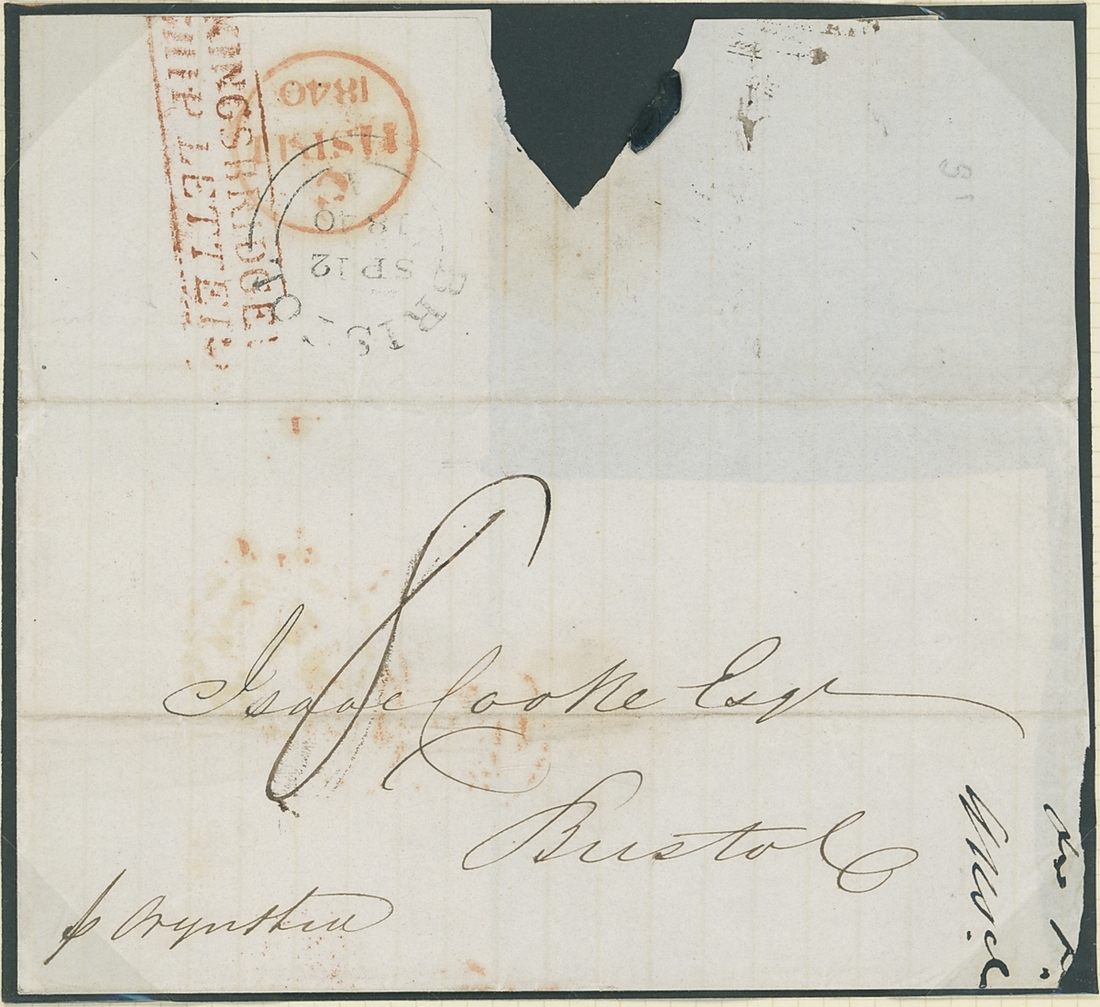 KINGSBRIDGE
SHIP LETTER
C
11SP11
1840
BRISTOL
SP 12
1840
8
Isaac Cooke Esqr
Bristol